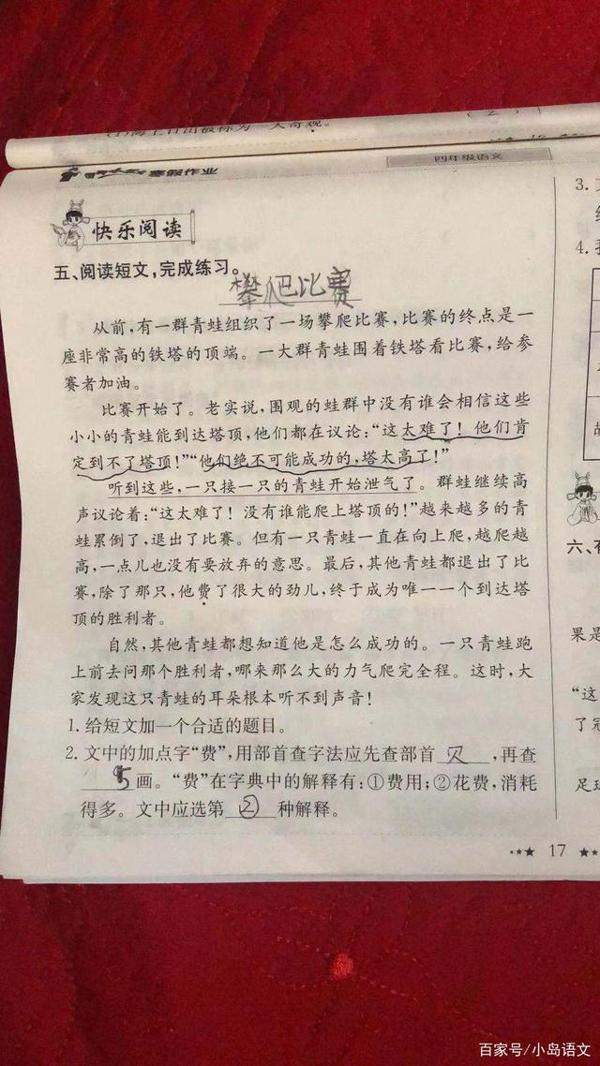 寒假作业
四年级语文
快乐阅读
五、阅读短文,完成练习。
攀爬比赛
从前,有一群青蛙组织了一场攀爬比赛,比赛的终点是一
座非常高的铁塔的顶端。一大群青蛙围着铁塔看比赛,给参
赛者加油。
比赛开始了。老实说,围观的蛙群中没有谁会相信这些
小小的青蛙能到达塔顶,他们都在议论:“这太难了!他们肯
定到不了塔顶!”“他们绝不可能成功的,塔太高了!”
听到这些,一只接一只的青蛙开始泄气了。群蛙继续高
声议论着:“这太难了!没有谁能爬上塔顶的!”越来越多的青
蛙累倒了,退出了比赛。但有一只青蛙一直在向上爬,越爬越
高,一点儿也没有要放弃的意思。最后,其他青蛙都退出了比
赛,除了那只,他费了很大的劲儿,终于成为唯一一个到达塔
顶的胜利者。
自然,其他青蛙都想知道他是怎么成功的。一只青蛙跑
上前去问那个胜利者,哪来那么大的力气爬完全程。这时,大
家发现这只青蛙的耳朵根本听不到声音!
1. 给短文加一个合适的题目。
2. 文中的加点字“费”,用部首查字法应先查部首贝,再查
5画。“费”在字典中的解释有:①费用;②花费,消耗
得多。文中应选第②种解释。
17
3.
4.
六、
果是
“这
了
足球
百家号/小岛语文